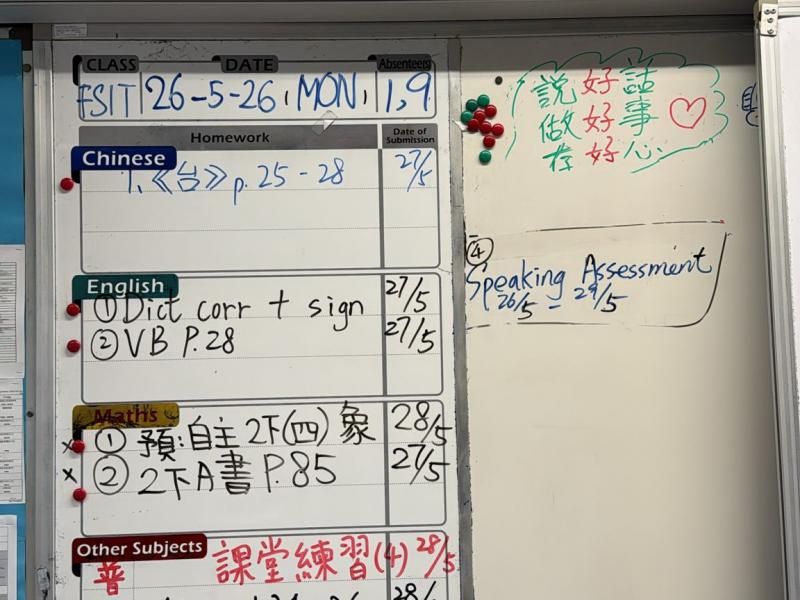 CLASS DATE Absentees
26-5-26, MON, 1,9
Homework Date of Submission
Chinese
1.《台》p.25-28 27/5
English
① Dict corr + sign 27/5
② VB P.28 27/5
Maths
① 預:自主2下(四)象 28/5
② 2下A書 P.85 27/5
Other Subjects
普 課堂練習(4) 28/5
說好話
做好事
存好心
④
Speaking Assessment
26/5 - 29/5